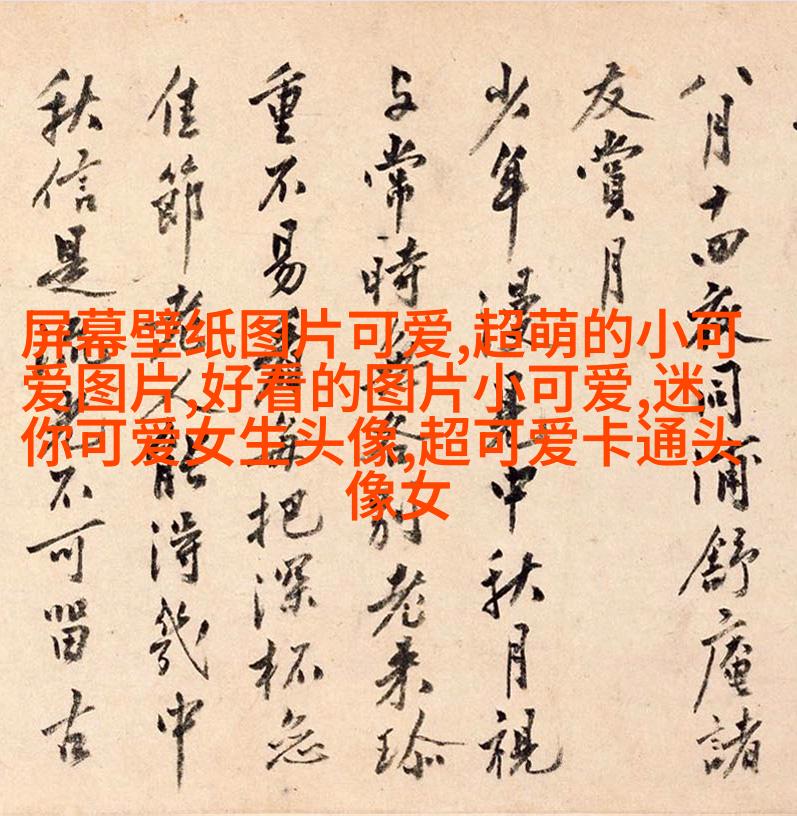 屏幕壁纸图片可爱,超萌的小可
爱图片,好看的图片小可爱,迷
你可爱女生头像,超可爱卡通头
像女
八月十四夜同浦舒庵諸
友賞月
少年漫見中秋月視
与常時別老来珍
重不易每把深杯
佳節老人能得幾中
秋信是不可留古